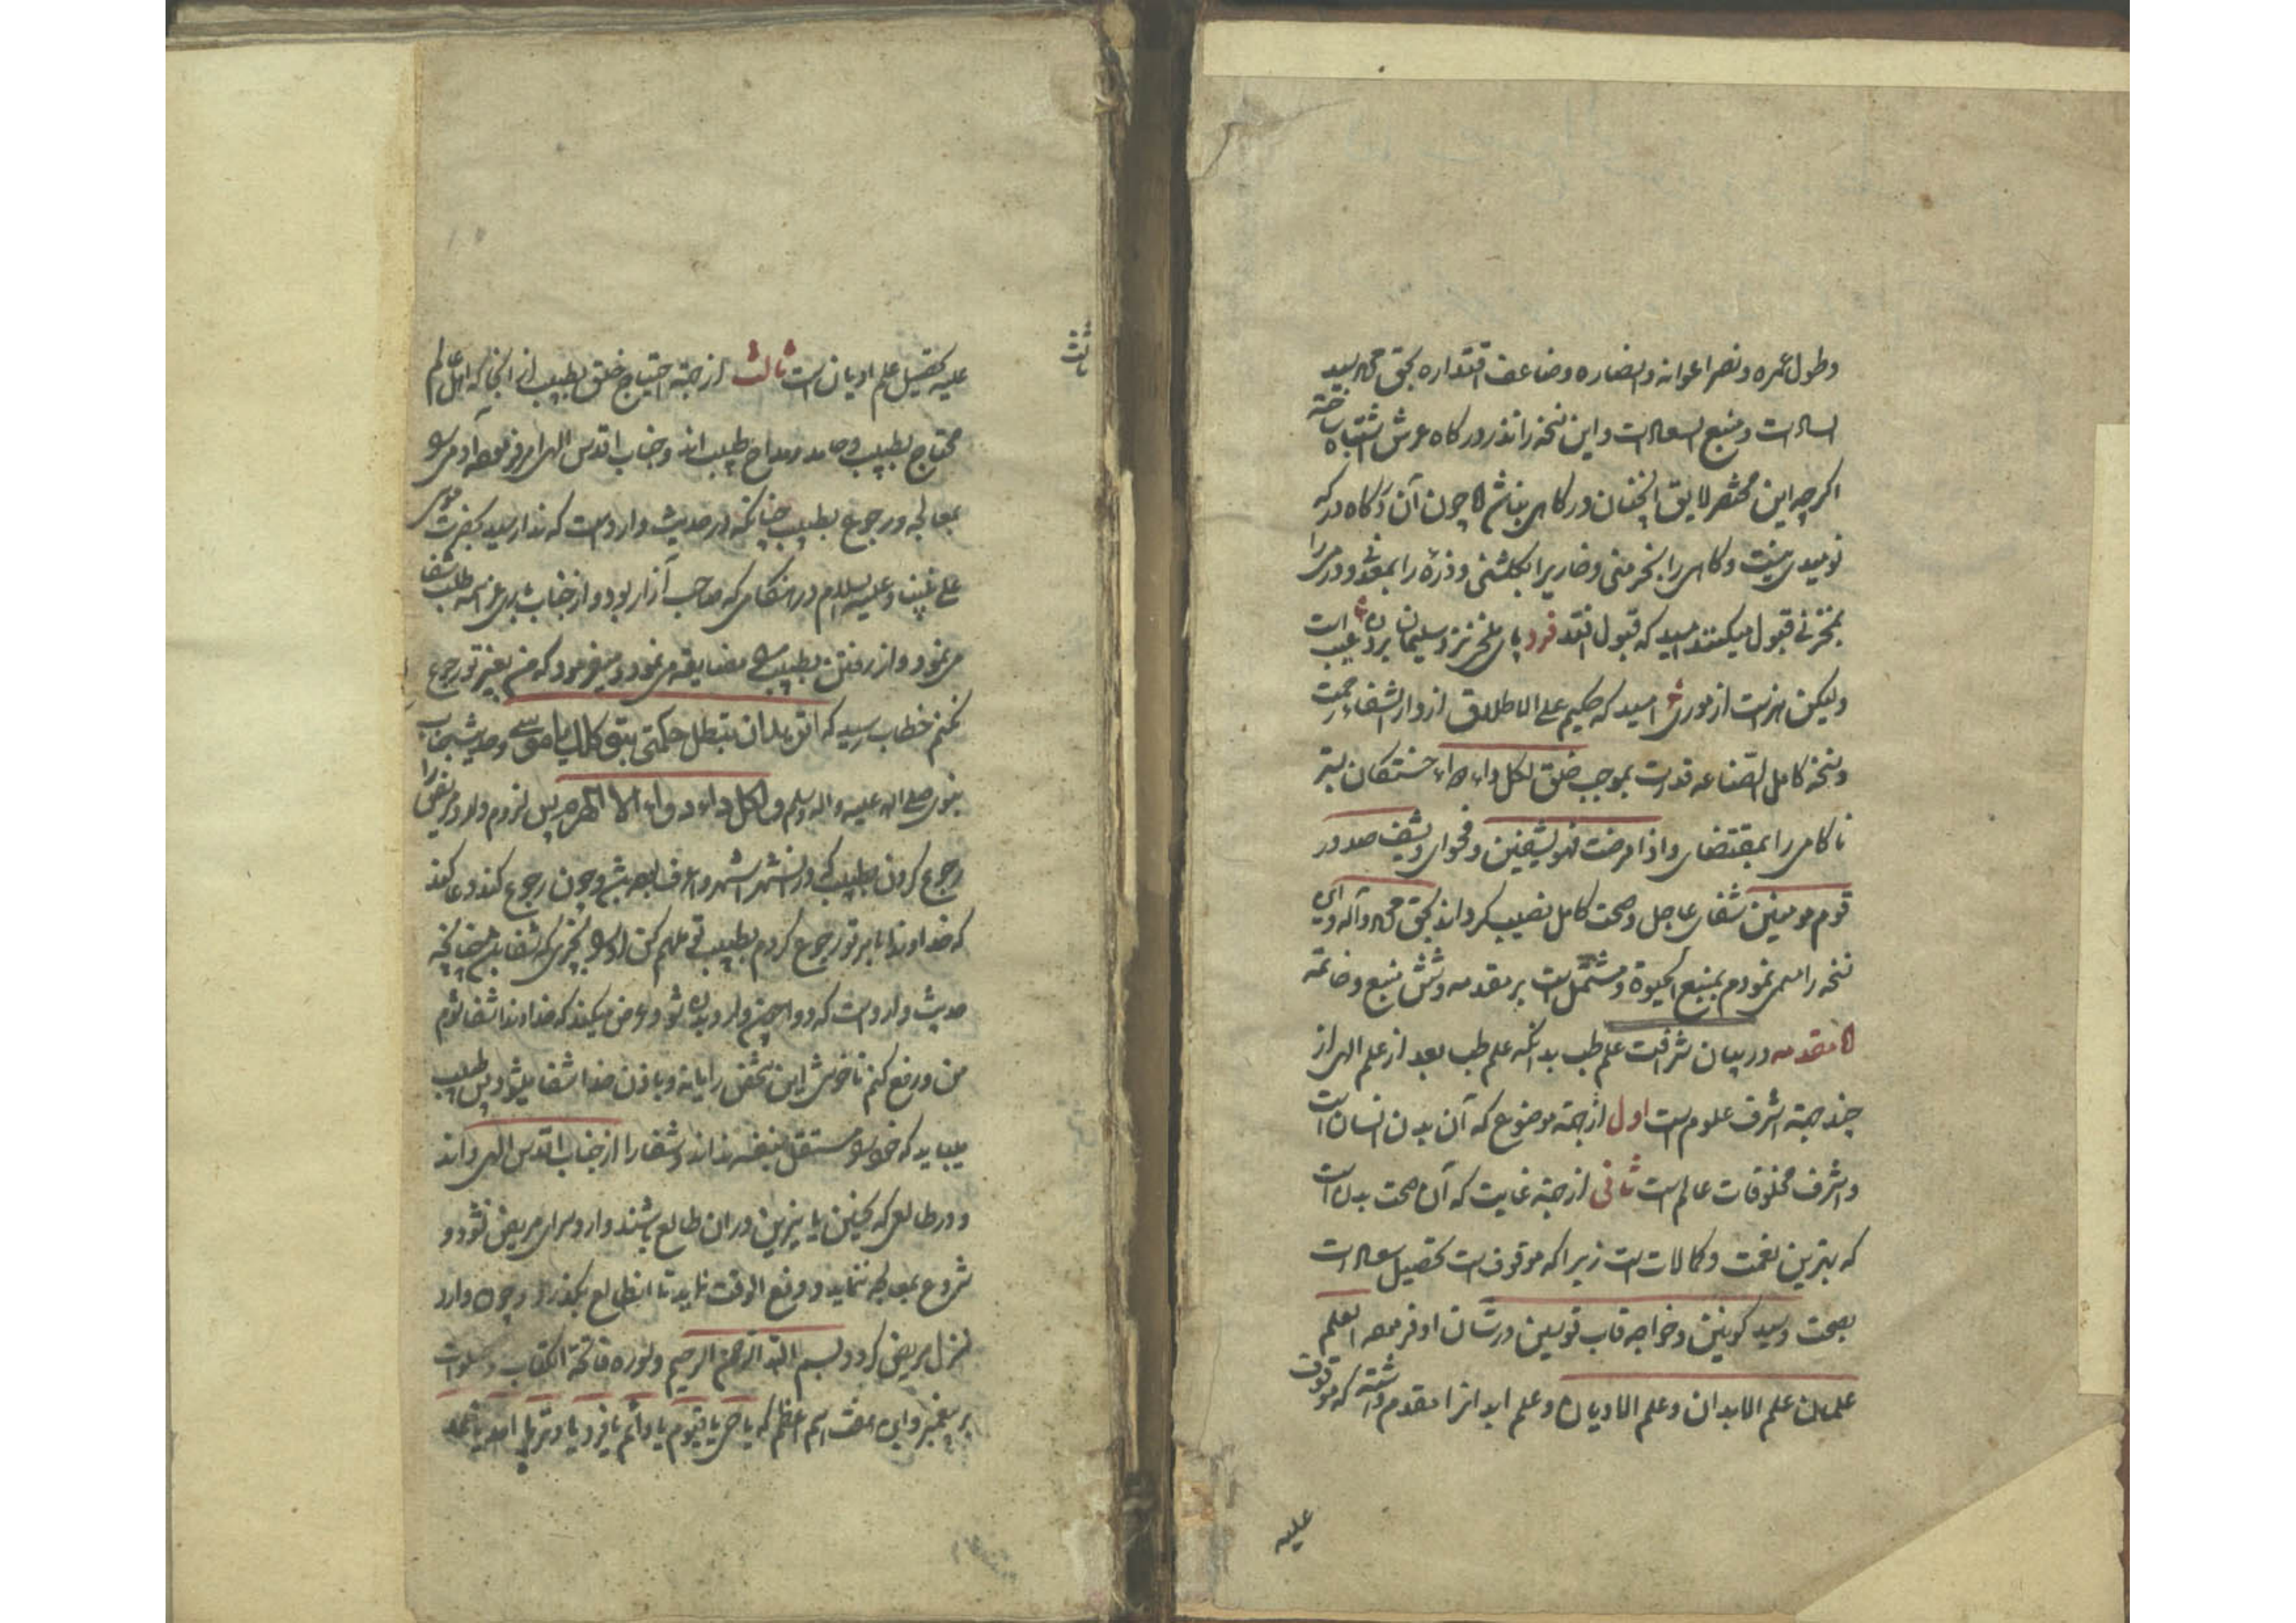 وطول عمره ونصر اعوانه وانصاره وضاعف اقتداره بحق محمد سید
السادات ومنبع السعادات و این نسخه را نذر درکاه عرش اشتباه ساخته
اکرچه این مختصر لایق انچنان درکاهی نباشد اما چون آن درکاه در که
نومیدی نیست و کاهی را بخرمنی و خاریرا بکلشنی و ذره را و درمی را
بمخزنی قبول میکنند امید که قبول افتد فرد پای ملخی نزد سلیمان بردن عیب است
ولیکن هنر است از موری امید که حکیم علی الاطلاق از دار الشفاء رحمت
ونسخه کامل الصناعه قدرت بموجب خلق لکل داء دواء خستکان بستر
ناکامی را بمقتضای واذا مرضت فهو یشفین و فحوای ویشف صدور
قوم مومنین شفای عاجل و صحت کامل نصیب کرداند بحق محمد وآله و این
نسخه را مسمی نمودم بمنبع الحیوة و مشتمل است بر مقدمه و شش منبع و خاتمه
اما مقدمه در بیان شرافت علم طب بدانکه علم طب بعد از علم الهی از
چند جهة اشرف علوم است اول از جهة موضوع که آن بدن انسان است
و اشرف مخلوقات عالم است ثانی از جهة غایت که آن صحت بدن است
که بهترین نعمت و کمالات است زیرا که موقوف است تحصیل سعادات
بصحت و سید کونین و خواجه قاب قوسین درشان او فرموده العلم
علمان علم الابدان وعلم الادیان و علم ابدانرا مقدم داشته که موقوف
علیه
علیه تحصیل علم ادیان است ثالث از جهة احتیاج خلق بطبیب از انجا که اهل عالم
ثالث
محتاج بطبیب و حامد و مداح طبیب اند و جناب اقدس الهی امر فرموده آدمی را
بمعالجه و رجوع بطبیب چنانکه در حدیث وارد است که ندا رسید بحضرت موسی
علی نبینا وعلیه السلام در هنکامی که صاحب آزار بود و از جناب باری عز اسمه طلب شفا
می نمود و از رفتن بطبیب مضایقه می نمود و میفرمود که من بغیر تو رجوع
نکنم خطاب رسید که اترید ان تبطل حکمتی بتوکلک یا موسی و حدیث جناب
نبوی صلی الله علیه و اله وسلم لکل داء دواء الا پس لزوم دارد مریض را
رجوع کردن بطبیبی که در انشهر اشهر و اعرف بوده باشد و چون رجوع کند دعا کند
که خداوندا بامر تو رجوع کردم بطبیب تو ملهم کن او را بچیزی که شفا چنانچه
حدیث وارد است که دوا و عرض میکند که خداوندا شفا شوم
من و رفع کنم ناخوشی این شخص را یا نه و باذن خدا شفا میشود پس طبیب
میباید که خود را مستقل بنفسه نداند و شفا را از جناب اقدس الهی داند
و در طالعی که نحسین یا نیرین در ان طالع باشند وارد سرای مریض نشود و
شروع بمعالجه ننماید و دفع الوقت نماید تا انطالع بکذرد و چون وارد
منزل مریض کردد بسم الله الرحمن الرحیم و سوره فاتحة الکتاب و صلوات
بر پیغمبر و این هفت اسم اعظم که یا حی یا قیوم یا دائم یا فرد یا وتر یا احد یا صمد